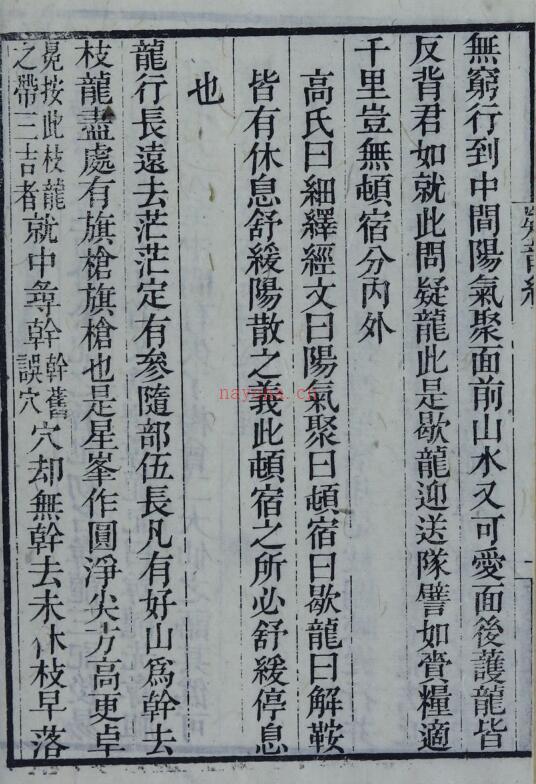 無窮行到中間陽氣聚面前山水又可愛面後護龍皆
反背君如就此問疑龍此是歇龍迎送隊譬如賫糧適
千里豈無頓宿分內外
高氏曰細繹經文曰陽氣聚曰頓宿曰歇龍曰解鞍
皆有休息舒緩陽散之義此頓宿之所必舒緩停息
也
龍行長遠去茫茫定有參隨部伍長凡有好山爲幹去
枝龍盡處有旗槍旗槍也是星峯作圓淨尖方高更卓
晃按此枝龍
之帶三吉者
就中尋幹
幹舊
誤穴
穴却無幹去未休枝早落
nayona.cn